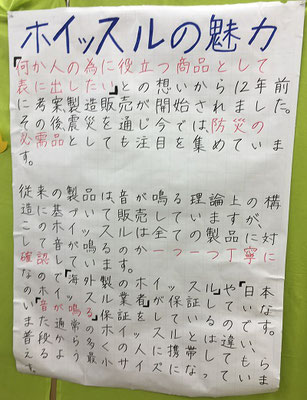 ホイッスルの魅力
「何か人の為に役立つ商品として
表に出したい」との想いから12年前
に考案製造販売が開始されました。
その後震災を通じ今では、防災の
必需品としても注目を集めていま
す。
従来の製品は音が鳴る理論上の構
造に基づいて販売していますが、
このホイッスルは全ての製品に対
して音が鳴るのか一つ一つ丁寧に
確認しています。
なので「海外製のホイッスルや「日本
ホイッスル業者」が保証
「音が鳴る」保証を